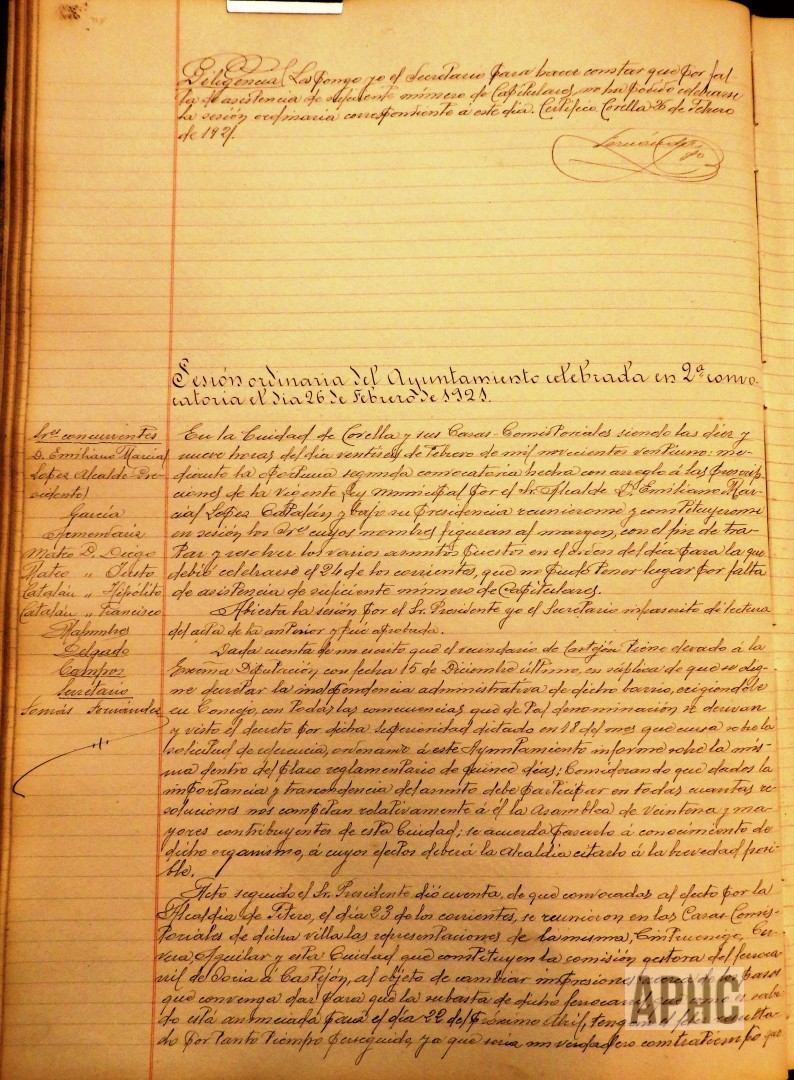 Diligencia/ La pongo yo el Secretario para hacer constar que por fal-
ta de asistencia de suficiente número de Capitulares, no ha podido celebrarse
la sesión ordinaria correspondiente á este día. Certifico Corella 26 de Febrero
de 1921.
Fernández
Sesión ordinaria del Ayuntamiento celebrada en 2ª convo-
catoria el día 26 de Febrero de 1921.
Sres concurrentes
D. Emiliano Marcial
López Alcalde-Pre-
sidente/
García
Mateo D. Diego
Mateo " Justo
Catalán " Hipólito
Catalán " Francisco
Delgado
Campos
Secretario
Tomás Fernández
En la Ciudad de Corella y sus Casas-Comistoriales siendo las diez y
nueve horas del día veintiseis de Febrero de mil novecientos veintiuno: me-
diante la oportuna segunda convocatoria hecha con arreglo á las prescrip-
ciones de la vigente Ley Municipal por el Sr. Alcalde D. Emiliano Mar-
cial López Catalán y bajo su presidencia reunieronse y constituyeronse
en sesión los Sres cuyos nombres figuran al margen, con el fin de tra-
tar y resolver los varios asuntos puestos en el orden del día para la que
debió celebrarse el 24 de los corrientes, que no pudo tener lugar por falta
de asistencia de suficiente número de Capitulares.
Abierta la sesión por el Sr. Presidente yo el Secretario infrascrito dí lectura
del acta de la anterior y fué aprobada.
Dada cuenta de un escrito que el vecindario de Castejón tiene elevado á la
Excma Diputación con fecha 15 de Diciembre último, en súplica de que se dig-
ne decretar la independencia administrativa de dicho barrio, erigiéndole
en Concejo, con todas las consecuencias que de tal denominación se derivan
y visto el decreto por dicha superioridad dictado en 18 del mes que cursa sobre la
solicitud de referencia, ordenando á este Ayuntamiento informe sobre la mis-
ma dentro del plazo reglamentario de quince días; Considerando que dados la
importancia y trascendencia del asunto debe participar en todas cuantas re-
soluciones nos competan relativamente á él la Asamblea de Veintena y ma-
yores contribuyentes de esta Ciudad; se acuerda pasarlo á conocimiento de
dicho organismo, á cuyos efectos deberá la Alcaldía citarlo á la brevedad posi-
ble.
Acto seguido el Sr. Presidente dió cuenta, de que convocadas al efecto por la
Alcaldía de Fitero, el día 23 de los corrientes, se reunieron en las Casas-Comis-
toriales de dicha villa las representaciones de la misma, Cintruénigo, Cer-
vera, Aguilar y esta Ciudad que constituyen la comisión gestora del ferroca-
rril de Soria á Castejón, al objeto de cambiar impresiones acerca de los pasos
que convenga dar para que la subasta de dicho ferrocarril que como es sabi-
do está anunciada para el día 22 del próximo Abril, tenga el resulta-
do por tanto tiempo perseguido, ya que sería un verdadero contratiempo que
APHC